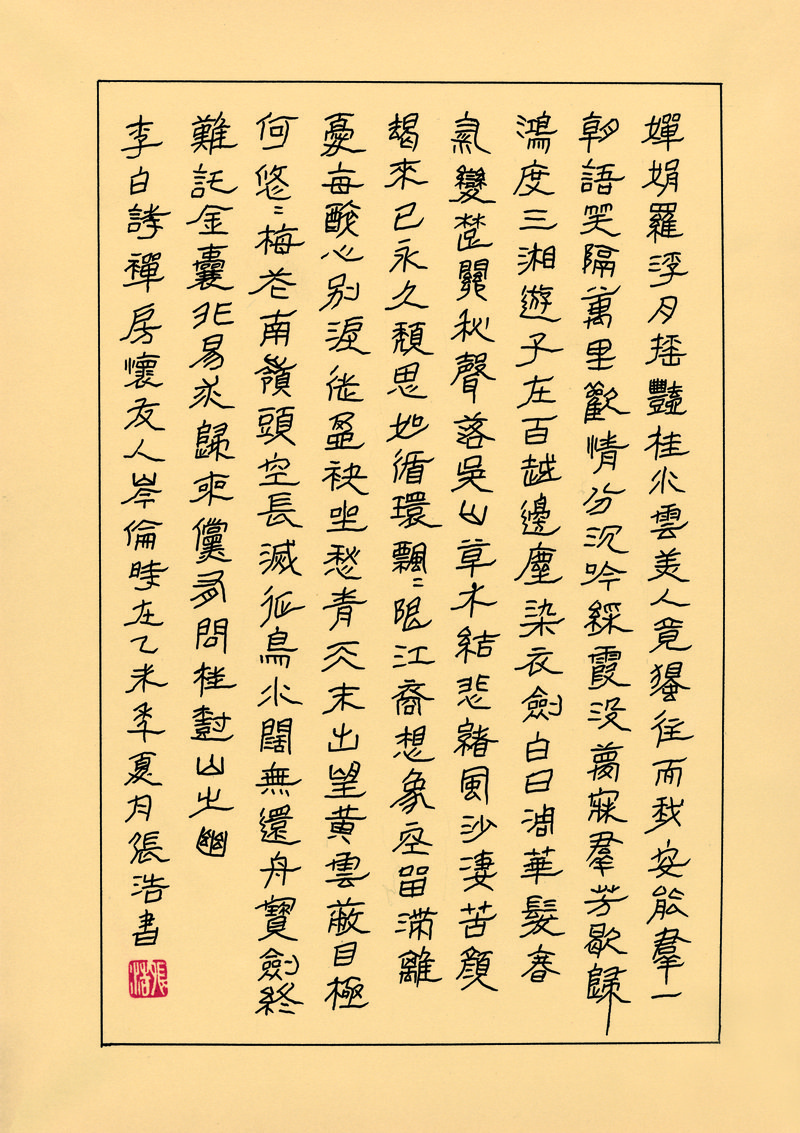 嬋娟羅浮月摇豔桂水雲美人竟獨往而我安能羣一
朝語笑隔萬里歡情分沉吟綵霞没夢寐羣芳歇歸
鴻度三湘遊子在百越邊塵染衣劍白日凋華髮春
氣變楚關秋聲落吳山草木結悲緒風沙淒苦顏
朅來已永久頹思如循環飄〻限江裔想象空留滯離
憂每酸心別淚徒盈袂坐愁青天末出望黄雲蔽目極
何悠〻梅花南嶺頭空長滅征鳥水闊無還舟寶劍終
難託金囊非易求歸來儻有問桂樹山之幽
李白詩禪房懷友人岑倫時在乙未季夏月張浩書
張浩